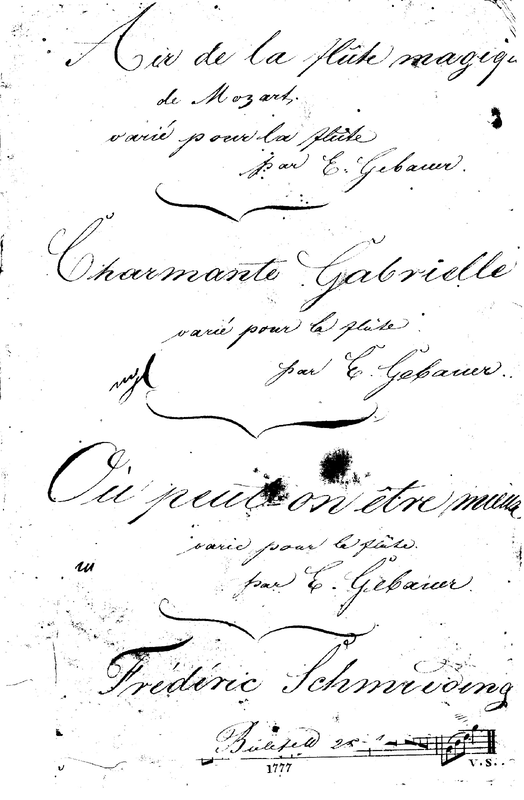 Air de la flûte magiqu
de Mozart.
varié pour la flûte
par E. Gebauer.
Charmante Gabrielle
varié pour la flûte
par E. Gebauer.
Où peut-on être mieux
varié pour la flûte.
par E. Gebauer.
Frédéric
Bielefeld
1777
V.S.